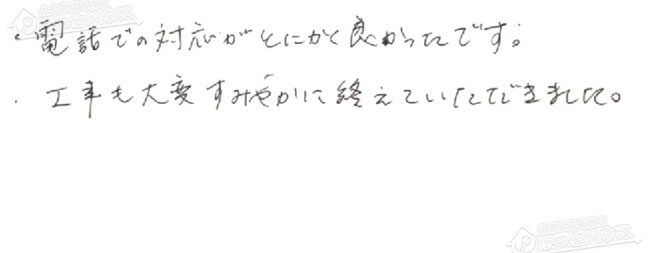 ・電話での対応がとにかく良かったです。
・工事も大変すみやかに終えていただきました。